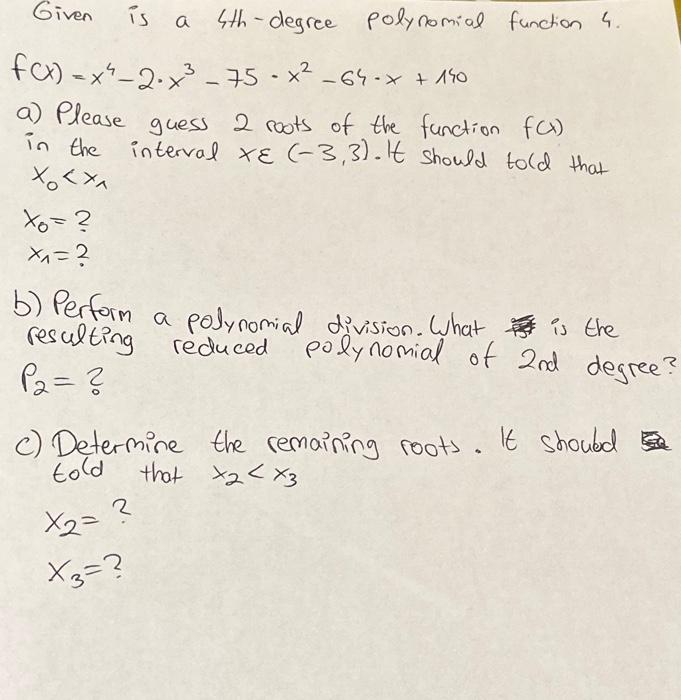 Given is a 4th-degree polynomial function 4.
f(x) = x⁴ - 2·x³ - 75·x² - 64·x + 140
a) Please guess 2 roots of the function f(x)
in the interval xε (-3,3). It should told that
x₀ < x₁
x₀ = ?
x₁ = ?
b) Perform a polynomial division. What is the
resulting reduced polynomial of 2nd degree?
P₂ = ?
c) Determine the remaining roots. It should
told that x₂ < x₃
x₂ = ?
x₃ = ?